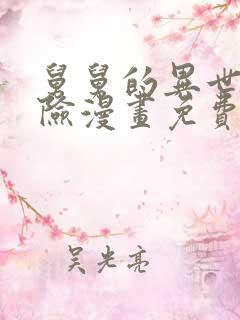 舅舅的異世
險漫畫免費
吴光亮